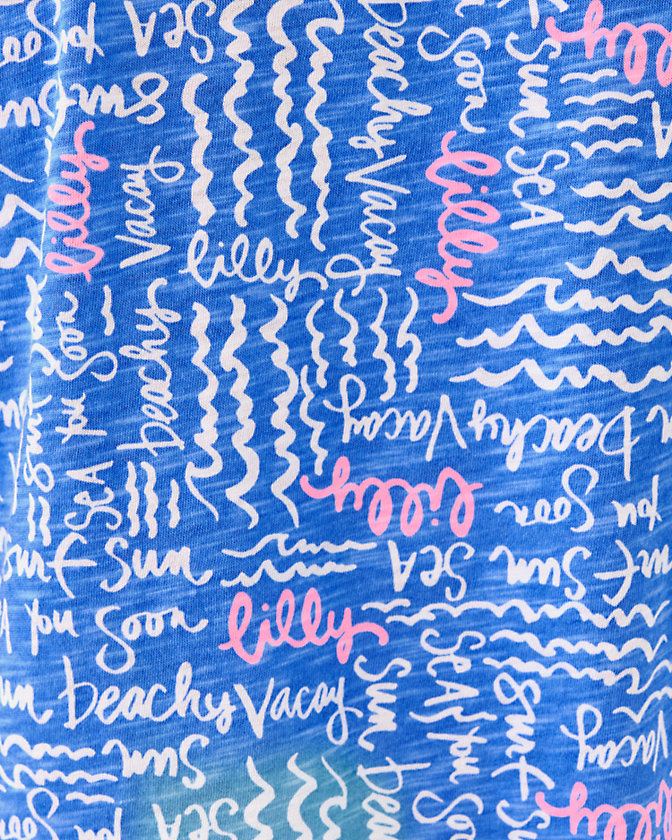 SEA You Soon
Beachy Vacay
Soon
Sun
lilly
Surf Sun
Sun SEA
lilly
Vacay
lilly
lilly
Beachy
SEA You Soon
Surf
Beachy Vacay
lilly
You Soon
Surf Sun
Surf Sun SEA
You Soon lilly
SEA You Soon
Surf
Sun Beachy Vacay
Sun Beachy
Vacay
Sun
SEA
lilly
Soon
You
lilly